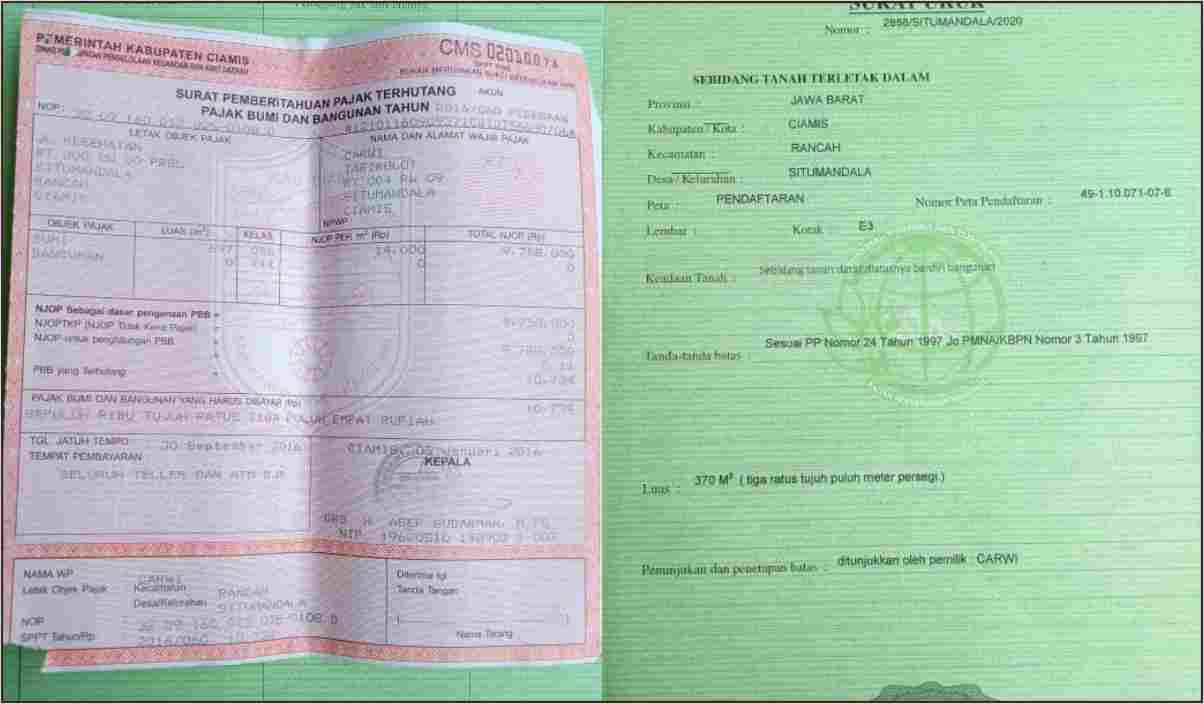 PEMERINTAH KABUPATEN CIAMIS
CMS
BUKAN MERUPAKAN BUKTI KEPEMILIKAN HAK
SURAT PEMBERITAHUAN PAJAK TERHUTANG
AKUN
PAJAK BUMI DAN BANGUNAN TAHUN 2016
NOP :
LETAK OBJEK PAJAK
NAMA DAN ALAMAT WAJIB PAJAK
JL. KESEHATAN
SITUMANDALA
RANCAH
CIAMIS
CARWI
TARIKOLOT
RT 004 RW 09
SITUMANDALA
CIAMIS
NPWP :
OBJEK PAJAK LUAS (m²) KELAS NJOP PER m² (Rp) TOTAL NJOP (Rp)
BUMI 14.000 9.758.000
BANGUNAN 0 0 0
NJOP Sebagai dasar pengenaan PBB =
9.758.000
NJOPTKP (NJOP Tidak Kena Pajak) =
0
NJOP untuk penghitungan PBB
PBB yang Terhutang =
10.734
PAJAK BUMI DAN BANGUNAN YANG HARUS DIBAYAR (Rp)
SEPULUH RIBU TUJUH RATUS TIGA PULUH EMPAT RUPIAH
TGL. JATUH TEMPO : 30 September 2016
TEMPAT PEMBAYARAN
SELURUH TELLER DAN ATM BJB
CIAMIS, 05 Januari 2016
KEPALA
NIP.
NAMA WP : CARWI
Letak Objek Pajak : Kecamatan RANCAH
Desa/Kelurahan SITUMANDALA
NOP
SPPT Tahun/Rp.
Diterima tgl
Tanda Tangan
Nama Terang
SURAT UKUR
Nomor : 2898/SITUMANDALA/2020
SEBIDANG TANAH TERLETAK DALAM
Provinsi : JAWA BARAT
Kabupaten / Kota : CIAMIS
Kecamatan : RANCAH
Desa / Kelurahan : SITUMANDALA
Peta : PENDAFTARAN Nomor Peta Pendaftaran : 49-1.10.071-07-6
Lembar : Kotak : E3
Keadaan Tanah : Sebidang tanah darat diatasnya berdiri bangunan
Tanda-tanda batas : Sesuai PP Nomor 24 Tahun 1997 Jo PMNA/KBPN Nomor 3 Tahun 1997
Luas : 370 M² ( tiga ratus tujuh puluh meter persegi )
Penunjukan dan penetapan batas : ditunjukkan oleh pemilik : CARWI